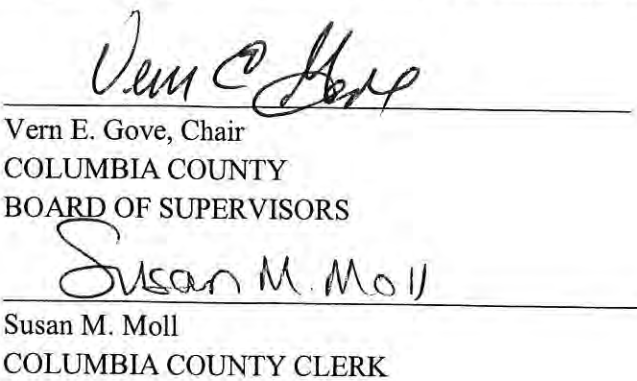 Vern E Gove
Vern E. Gove, Chair
COLUMBIA COUNTY
BOARD OF SUPERVISORS
Susan M. Moll
Susan M. Moll
COLUMBIA COUNTY CLERK